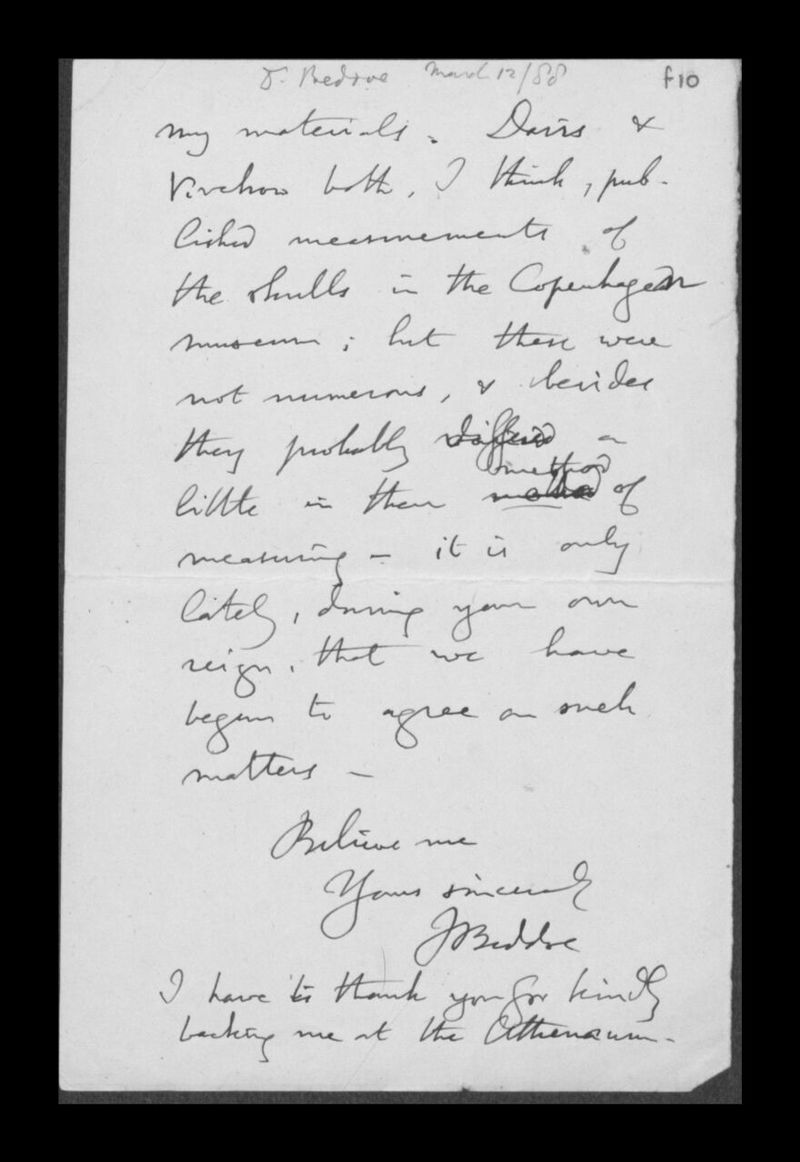 J. Beddoe March 12/88 f10
my materials. Davis &
Virchow both, I think, pub-
lished measurements of
the skulls in the Copenhagen
museum; but these were
not numerous, & besides
they probably differed a
method
little in their method of
measuring – it is only
lately, during your own
reign, that we have
begun to agree on such
matters –
Believe me
Yours sincerely
J Beddoe
I have to thank you for kindly
backing me at the Athenæum.